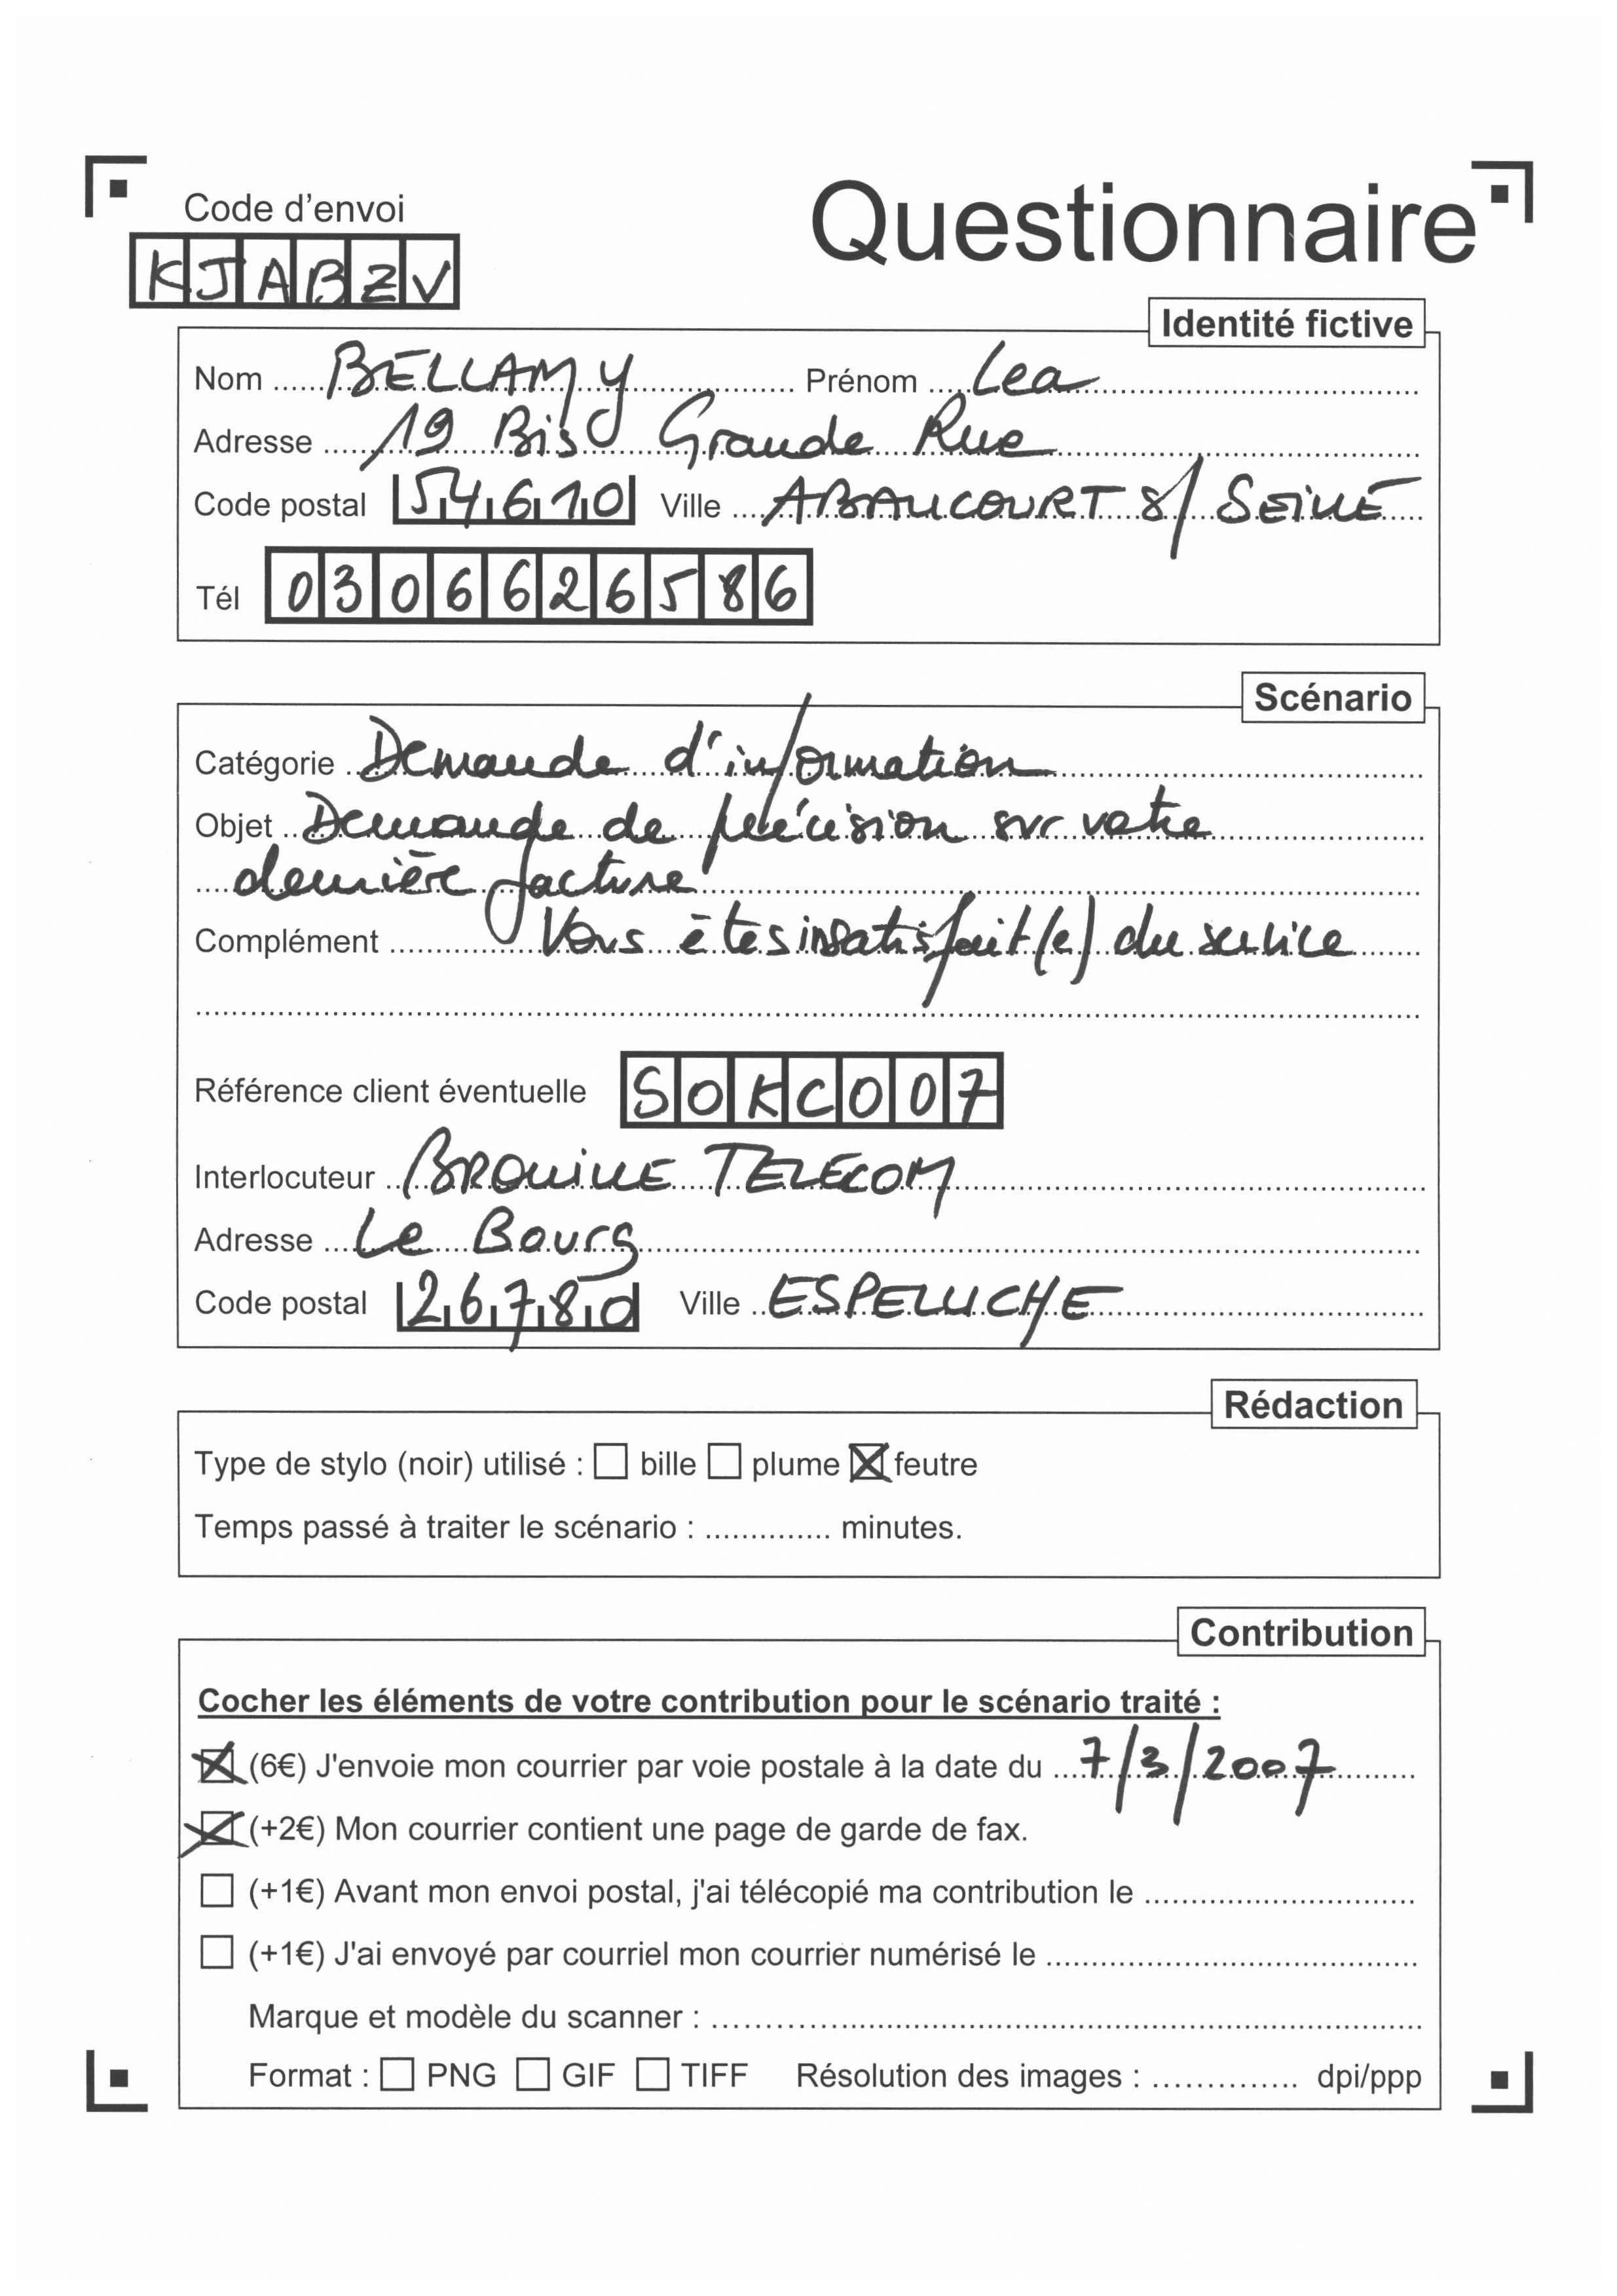 Code d'envoi
Questionnaire
KJABZV
Identité fictive
Nom BELLAMY Prénom Lea
Adresse 19 Bis Grande Rue
Code postal 54610 Ville ABAUCOURT S/ SEILLE
Tél 0306626586
Scénario
Catégorie Demande d'information
Objet Demande de précision sur votre
dernière facture
Complément Vous êtes insatisfait(e) du service
Référence client éventuelle SOKC007
Interlocuteur BROUILLE TELECOM
Adresse Le Bourg
Code postal 26780 Ville ESPELUCHE
Rédaction
Type de stylo (noir) utilisé : ☐ bille ☐ plume ☒ feutre
Temps passé à traiter le scénario : .............. minutes.
Contribution
Cocher les éléments de votre contribution pour le scénario traité :
☒ (6€) J'envoie mon courrier par voie postale à la date du 7/3/2007
☒ (+2€) Mon courrier contient une page de garde de fax.
☐ (+1€) Avant mon envoi postal, j'ai télécopié ma contribution le ..............
☐ (+1€) J'ai envoyé par courriel mon courrier numérisé le ..............
Marque et modèle du scanner : ..............
Format : ☐ PNG ☐ GIF ☐ TIFF Résolution des images : .............. dpi/ppp